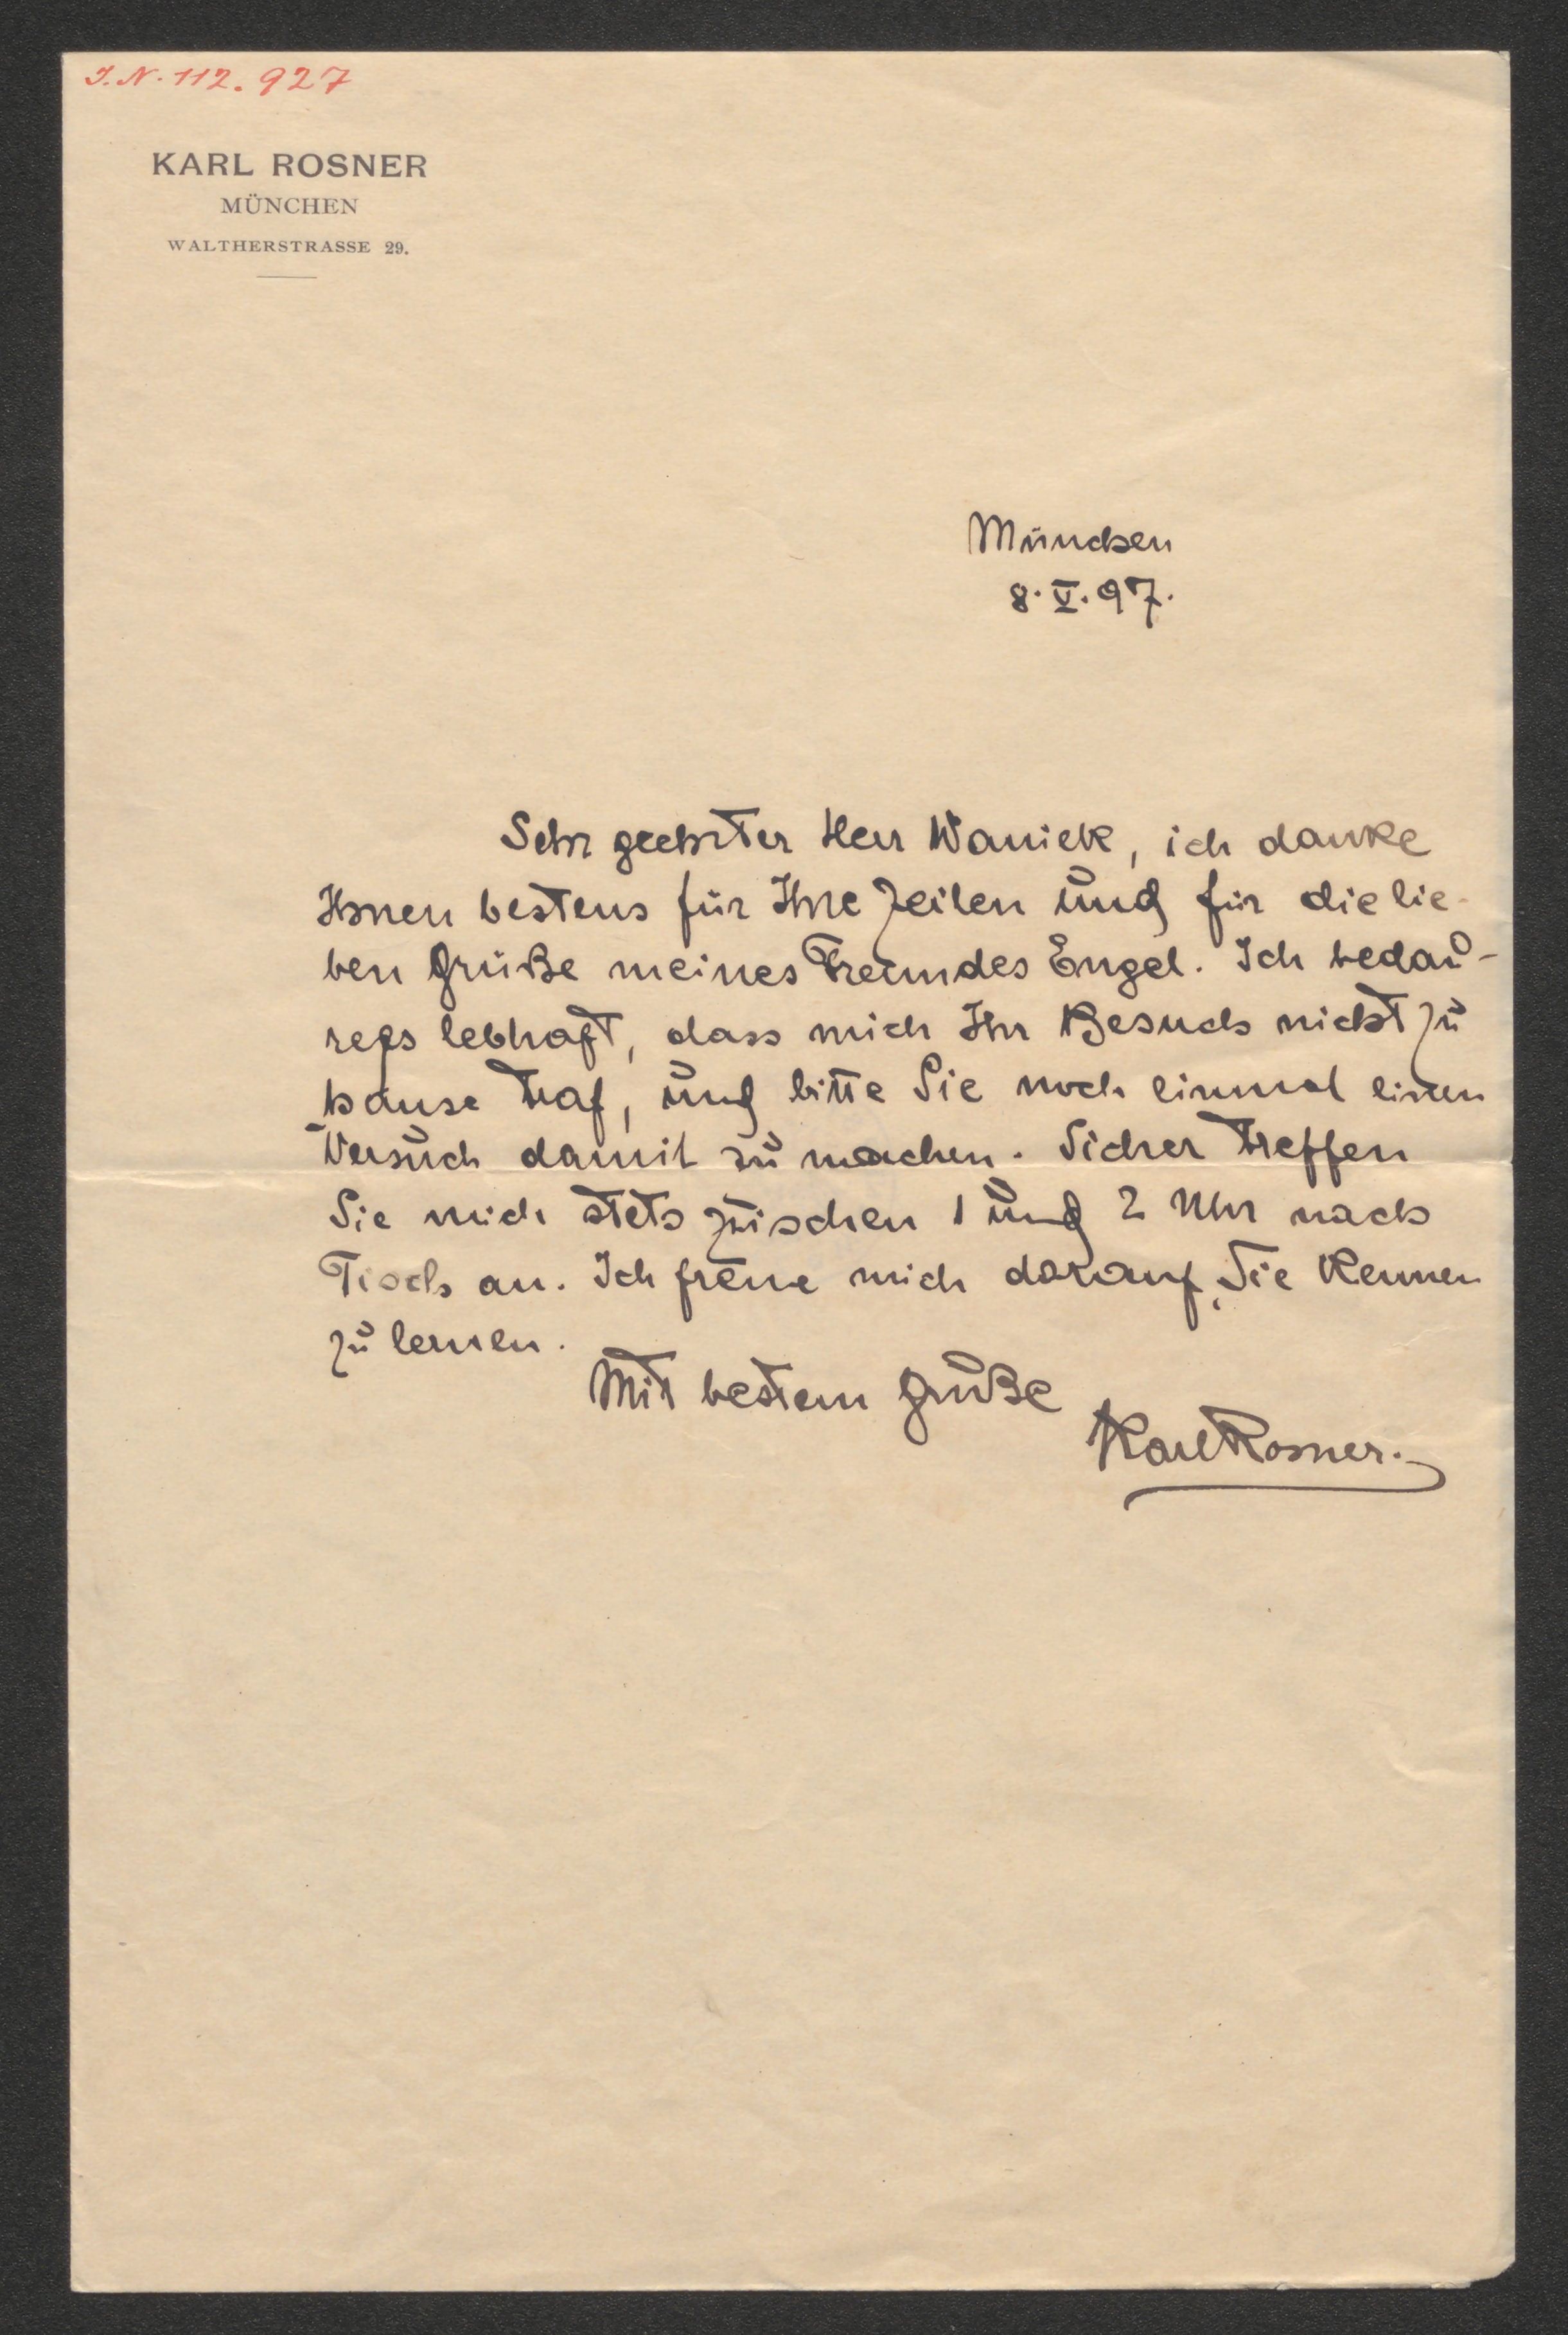 J.N. 112.927
KARL ROSNER
MÜNCHEN
WALTHERSTRASSE 29.
München
8.V.97.
Sehr geehrter Herr Waniek, ich danke
Ihnen bestens für Ihre Zeilen und für die lie-
ben Grüße meines Freundes Engel. Ich bedau-
re es lebhaft, dass mich Ihr Besuch nicht zu
hause traf, und bitte Sie noch einmal einen
Versuch damit zu machen. Sicher treffen
Sie mich stets zwischen 1 und 2 Uhr nach
Tisch an. Ich freue mich darauf, Sie kennen
zu lernen.
Mit bestem Gruße
Karl Rosner.